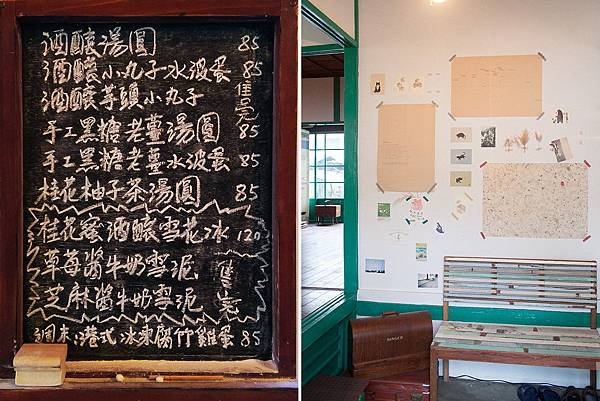 酒釀湯圓 85
酒釀小丸子水波蛋 85
酒釀芋頭小丸子 售完
手工黑糖老薑湯圓 85
手工黑糖老薑水波蛋 85
桂花柚子茶湯圓 85
桂花蜜酒釀雪花冰 120
草莓醬牛奶雪泥 售完
芝麻醬牛奶雪泥
週末:港式冰凍腐竹雞蛋 85